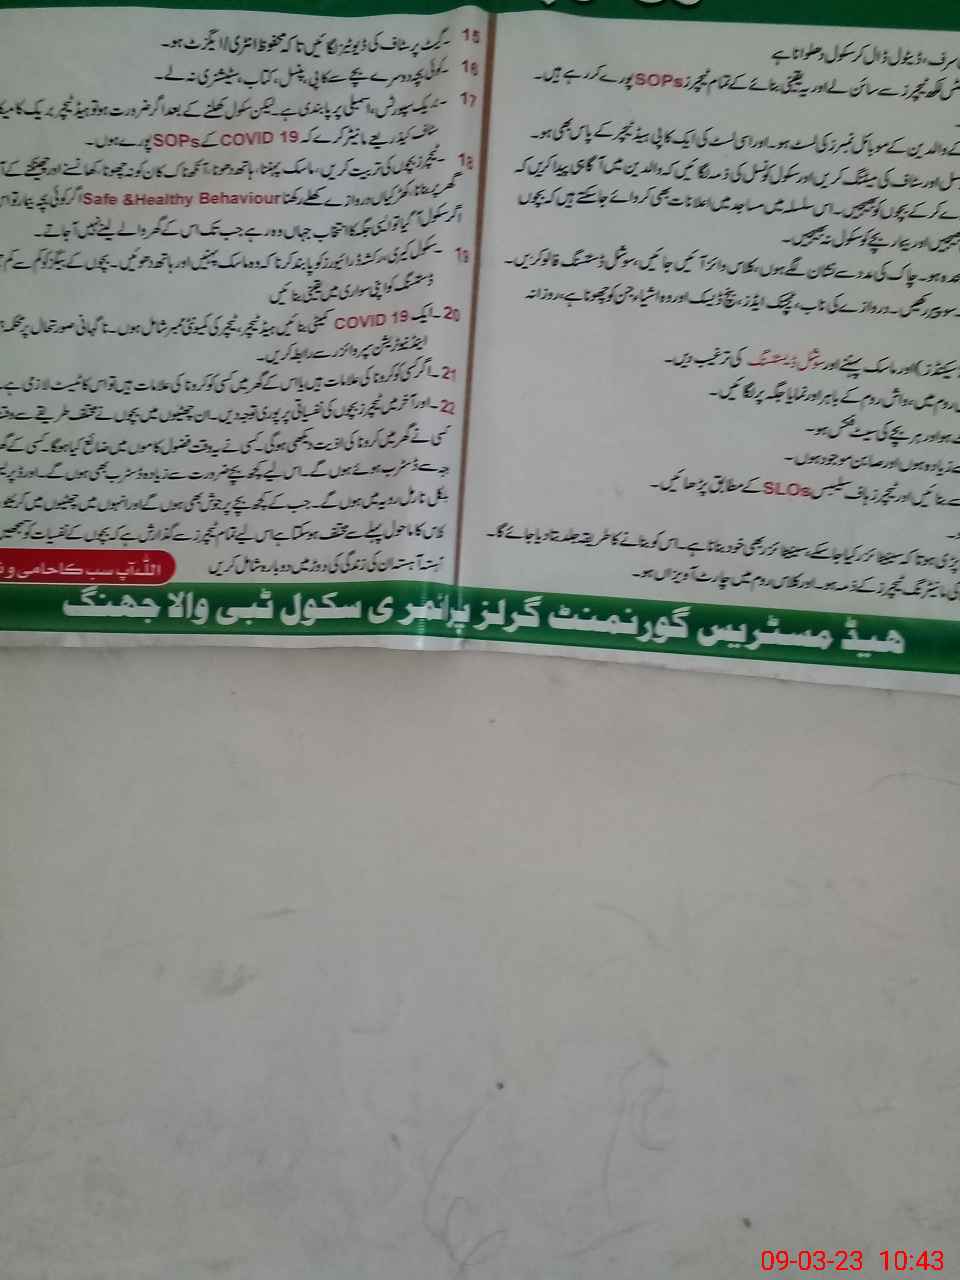 سرف، ڈیٹول ڈال کر سکول دھلوانا ہے
لکھ ٹیچرز سے سائن لے اور یہ یقینی بنائے کے تمام ٹیچرز SOPs پورے کر رہے ہیں۔
کے والدین کے موبائل نمبرز کی لسٹ ہو۔ اور اسی لسٹ کی ایک کاپی ہیڈ ٹیچر کے پاس بھی ہو۔
اور سٹاف کی میٹنگ کریں اور سکول کونسل کی ذمہ لگائیں کہ والدین میں آگاہی پیدا کریں کہ
کر کے بچوں کو بھیجیں۔ اس سلسلہ میں مساجد میں اعلانات بھی کروائے جا سکتے ہیں کہ بچوں
بھیجیں اور بیمار بچے کو سکول نہ بھیجیں۔
ہو۔ چاک کی مدد سے نشان لگے ہوں، کلاس وائز آئیں جائیں، سوشل ڈسٹنسنگ فالو کریں۔
پیپر رکھیں۔ دروازے کی ناب، ٹیچنگ ایڈز، بنچ ڈیسک اور وہ اشیاء جن کو چھونا ہے، روزانہ
اور ماسک پہننے اور سوشل ڈسٹنسنگ کی ترغیب دیں۔
روم میں، واش روم کے باہر اور نمایا جگہ پر لگائیں۔
ہو اور ہر بچے کی سیٹ فکس ہو۔
زیادہ ہوں اور صابن موجود ہوں۔
بنائیں اور ٹیچرز ہاف سلیبس SLOs کے مطابق پڑھائیں۔
بڑی ہونا کہ سینیٹائزر کیا جا سکے، سینیٹائزر بھی خود بنانا ہے۔ اس کو بنانے کا طریقہ جلد بتا دیا جائے گا۔
کی مانیٹرنگ ٹیچرز کے ذمہ ہو۔ اور کلاس روم میں چارٹ آویزاں ہو۔
15 ۔گیٹ پر سٹاف کی ڈیوٹیز لگائیں تا کہ محفوظ انٹری/ایگزٹ ہو۔
16 ۔کوئی بچہ دوسرے بچے سے کاپی، پنسل، کتاب، سٹیشنری نہ لے۔
17 ۔بریک سپورٹس، اسمبلی پر پابندی ہے۔ لیکن سکول کھلنے کے بعد اگر ضرورت ہو تو ہیڈ ٹیچر بریک کا
سٹاف کیذریعے مانیٹر کرے کہ COVID 19 کے SOPs پورے ہوں۔
18 ۔ٹیچرز بچوں کی تربیت کریں، ماسک پہننا، ہاتھ دھونا، آنکھ ناک کان کو نہ چھونا، کھانسنے اور چھینکنے کے
گھر پر بنانا، کھڑکیاں دروازے کھلے رکھنا Safe &Healthy Behaviour اگر کوئی بچہ بیمار
اگر سکول آ گیا تو ایسی جگہ کا انتخاب جہاں وہ رہے جب تک اس کے گھر والے لینے نہیں آ جاتے۔
19 ۔سکول کیری، رکشہ ڈرائیورز کو پابند کرنا کہ وہ ماسک پہنیں اور ہاتھ دھوئیں۔ بچوں کے بیگز کو کم سے کم
ڈسٹنسنگ کو اپنی سواری میں یقینی بنائیں
20 ۔ایک COVID 19 کمیٹی بنائیں ہیڈ ٹیچر، ٹیچر کی کمیونٹی ممبر شامل ہوں۔ ناگہانی صورتحال پر محکمہ
اینڈ نیوٹریشن سپروائزر سے رابطہ کریں۔
21 ۔اگر کسی کو کرونا کی علامات ہیں یا اس کے گھر میں کسی کو کرونا کی علامات ہیں تو اس کا ٹیسٹ لازمی ہے۔
22 ۔اور آخر میں ٹیچرز بچوں کی نفسیاتی پر پوری توجہ دیں۔ ان چھٹیوں میں بچوں نے مختلف طریقے سے
کسی نے گھر میں کرونا کی اذیت دیکھی ہوگی۔ کسی نے یہ وقت فضول کاموں میں ضائع کیا ہوگا۔ کسی کے
جہ سے ڈسٹرب ہوئے ہوں گے۔ اس لیے کچھ بچے ضرورت سے زیادہ ڈسٹرب بھی ہوں گے۔
نارمل رویہ میں ہوں گے۔ جب کے کچھ بچے پر جوش بھی ہوں گے اور انہوں میں چھٹیوں میں
کلاس کا ماحول پہلے سے مختلف ہو سکتا ہے اس لیے تمام ٹیچرز سے گذارش ہے کہ بچوں کے نفسیات کو سمجھیں
آہستہ ان کی زندگی کی دوڑ میں دوبارہ شامل کریں
اللہ آپ سب کا حامی و
ہیڈ مسٹریس گورنمنٹ گرلز پرائمری سکول ٹبی والا جھنگ
09-03-23 10:43